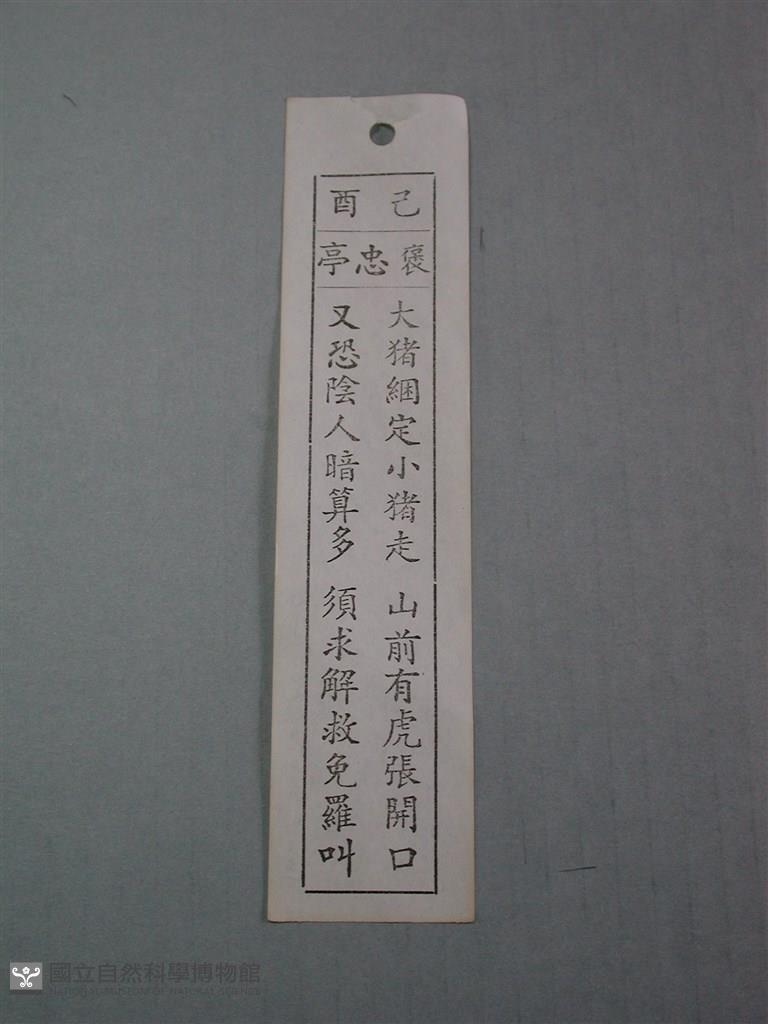 己酉
褒忠亭
大猪綑定小猪走 山前有虎張開口
又恐陰人暗算多 須求解救免羅叫
國立自然科學博物館
NATIONAL MUSEUM OF NATURAL SCIENCE